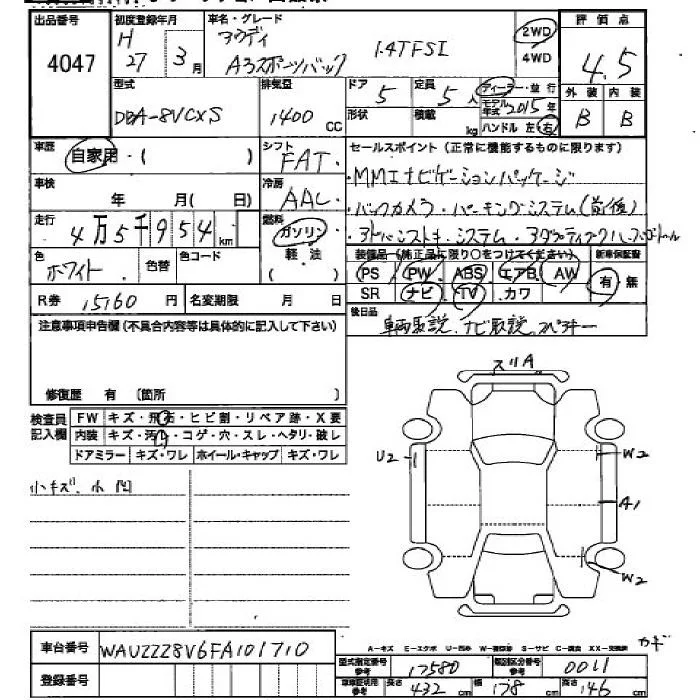 出品番号 初度登録年月 車名・グレード 評価点
4047 H27 3月 アウディ 1.4TFSI
A3スポーツバック 2WD 4WD 4.5
型式 排気量 ドア 5 定員 5人 ディーラー・並行
DBA-8VCXS 1400 CC 形状 積載 kg モデル年式 2015年 外装 内装
ハンドル 左・右 B B
車歴 自家用・( ) シフト FAT セールスポイント(正常に機能するものに限ります)
車検 年 月( 日) 冷房 AAC ・MMIナビゲーションパッケージ
走行 4万5千954km 燃料 ガソリン ・バックカメラ・パーキングシステム(前後)
軽・油 ・アドバンストキーシステム・アダプティブクルーズコントロール
色 ホワイト 色替 色コード ( ) 装備品(純正品に限り○をつけてください) 新車保証書
PS PW ABS エアB AW 有・無
R券 15760円 名変期限 月 日 SR ナビ TV カワ
注意事項申告欄(不具合内容等は具体的に記入して下さい) 後日品 車両取説、ナビ取説、スペアキー
修復歴 有 〔箇所 〕
検査員記入欄 FW キズ・飛石・ヒビ割・リペア跡・X要
内装 キズ・汚れ・コゲ・穴・スレ・ヘタリ・破レ
ドアミラー キズ・ワレ ホイール・キャップ キズ・ワレ
小キズ、小凹
スリA
U2 W2
A1
W2
カギ
A-キズ E-エクボ U-凹み W-補修跡 S-サビ C-腐食 XX-交換済
車台番号 WAUZZZ8V6FA101710
型式指定番号 参考 17580 類別区分番号 参考 0011
登録番号 車車証明用 参考 長さ 432cm 幅 178cm 高さ 146cm